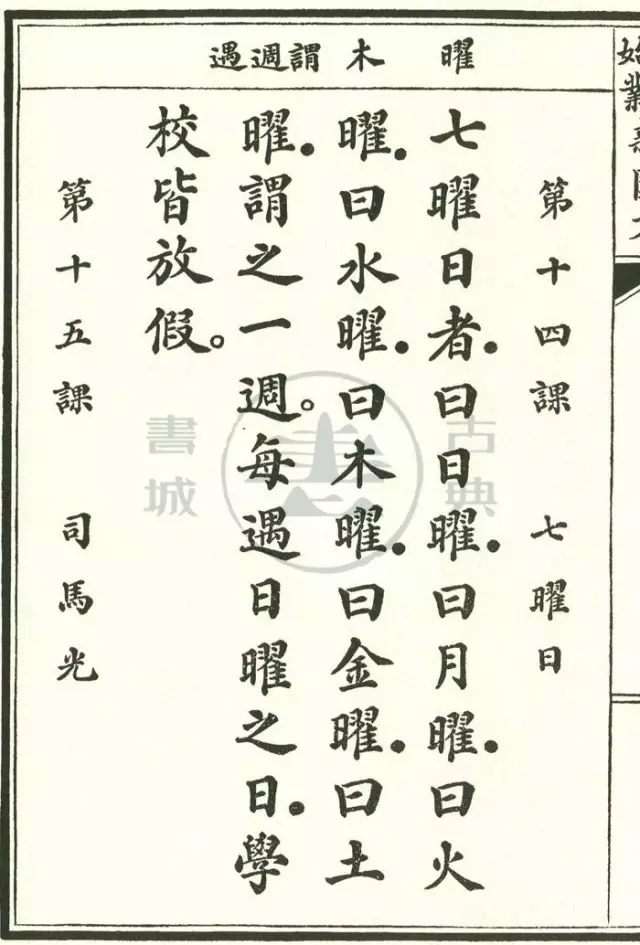 曜 木 謂週遇
第十四課 七曜日
七曜日者●曰日曜●曰月曜●曰火
曜●曰水曜●曰木曜●曰金曜●曰土
曜●謂之一週。每遇日曜之日●學
校皆放假。
第十五課 司馬光
古典
書城